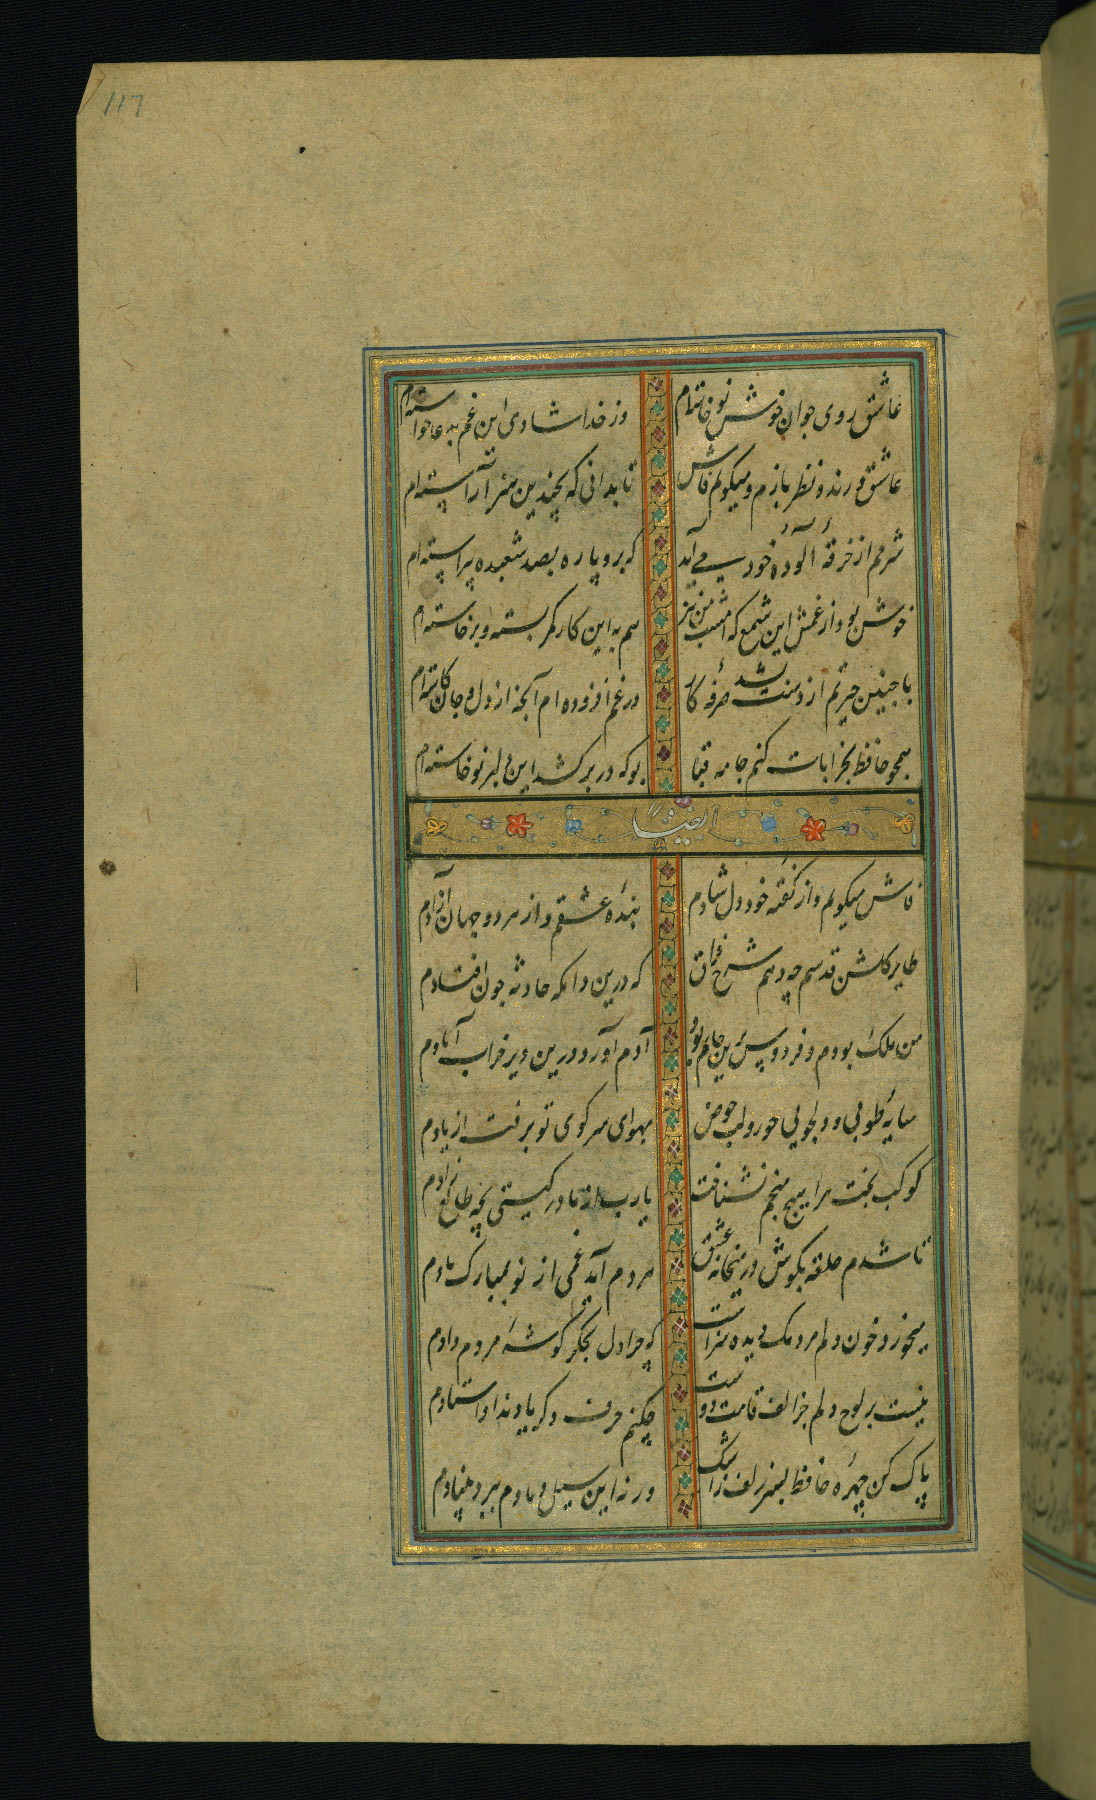 117
عاشق روی جوان خوش نو خاسته‌ام وز خدا شادی این غم بدعا خواسته‌ام
عاشق و رند و نظر بازم و میکویم فاش تا بدانی که بچندین هنر آراسته‌ام
شرمم از خرقه آلوده خود می‌آید که برو پاره بصد شعبده پیراسته‌ام
خوش بسوز از غمش این شمع که امشب من نیز هم به این کار کمر بسته و برخاسته‌ام
با چنین حیرتم از دست بشد صرفه کار در غم افزوده‌ام آنچه از دل و جان کاسته‌ام
همچو حافظ بخرابات کنم جامه قبا بو که در بر کشد این دلبر نوخاسته‌ام
ایضاً
فاش میکویم و از کفته خود دلشادم بنده عشقم و از هر دو جهان آزادم
طایر کلشن قدسم چه دهم شرح فراق که درین دامکه حادثه چون افتادم
من ملک بودم و فردوس برین جایم بود آدم آورد درین دیر خراب آبادم
سایه طوبی و دلجویی حور و لب حوض بهوای سر کوی تو برفت از یادم
کوکب بخت مرا هیچ منجم نشناخت یا رب از مادر کیتی بچه طالع زادم
تا شدم حلقه بکوش در میخانه عشق هر دم آید غمی از نو بمبارک بادم
میخورد خون دلم مردمک دیده سزاست که چرا دل بجکر کوشه مردم دادم
نیست بر لوح دلم جز الف قامت دوست چکنم حرف دکر یاد نداد استادم
پاک کن چهره حافظ بسر زلف ز اشک ورنه این سیل دمادم ببرد بنیادم